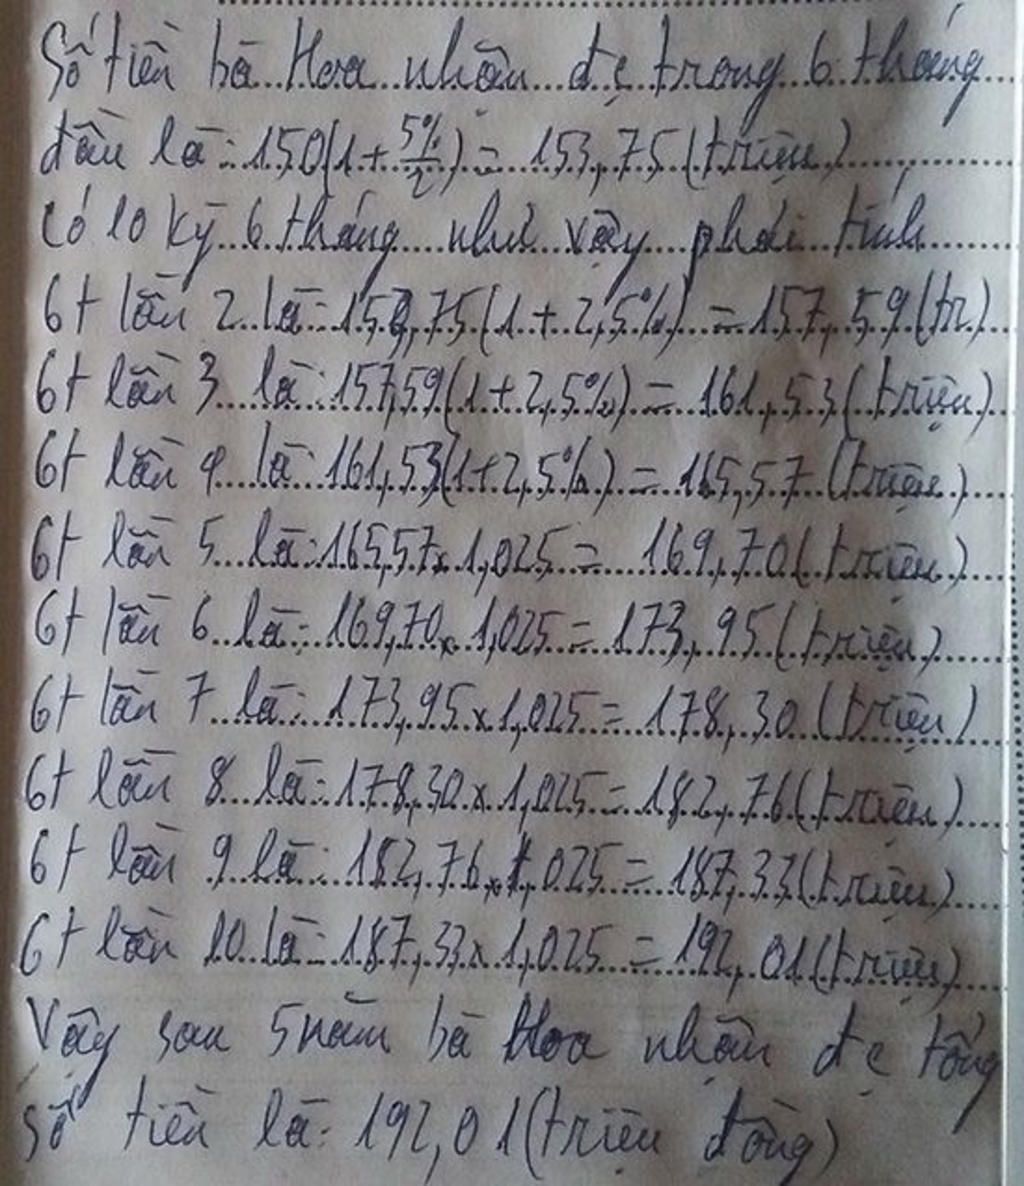 Số tiền bà Hoa nhận đc trong 6 tháng
đầu là: 150(1 + 5%/2) = 153,75 (triệu)
Có 10 kỳ 6 tháng như vậy phải tính
6t lần 2 là: 153,75(1 + 2,5%) = 157,59 (tr)
6t lần 3 là: 157,59(1+2,5%) = 161,53 (triệu)
6t lần 4 là: 161,53(1+2,5%) = 165,57 (triệu)
6t lần 5 là: 165,57 x 1,025 = 169,70 (triệu)
6t lần 6 là: 169,70 x 1,025 = 173,95 (triệu)
6t lần 7 là: 173,95 x 1,025 = 178,30 (triệu)
6t lần 8 là: 178,30 x 1,025 = 182,76 (triệu)
6t lần 9 là: 182,76 x 1,025 = 187,33 (triệu)
6t lần 10 là: 187,33 x 1,025 = 192,01 (triệu)
Vậy sau 5 năm bà Hoa nhận đc tổng
số tiền là: 192,01 (triệu đồng)